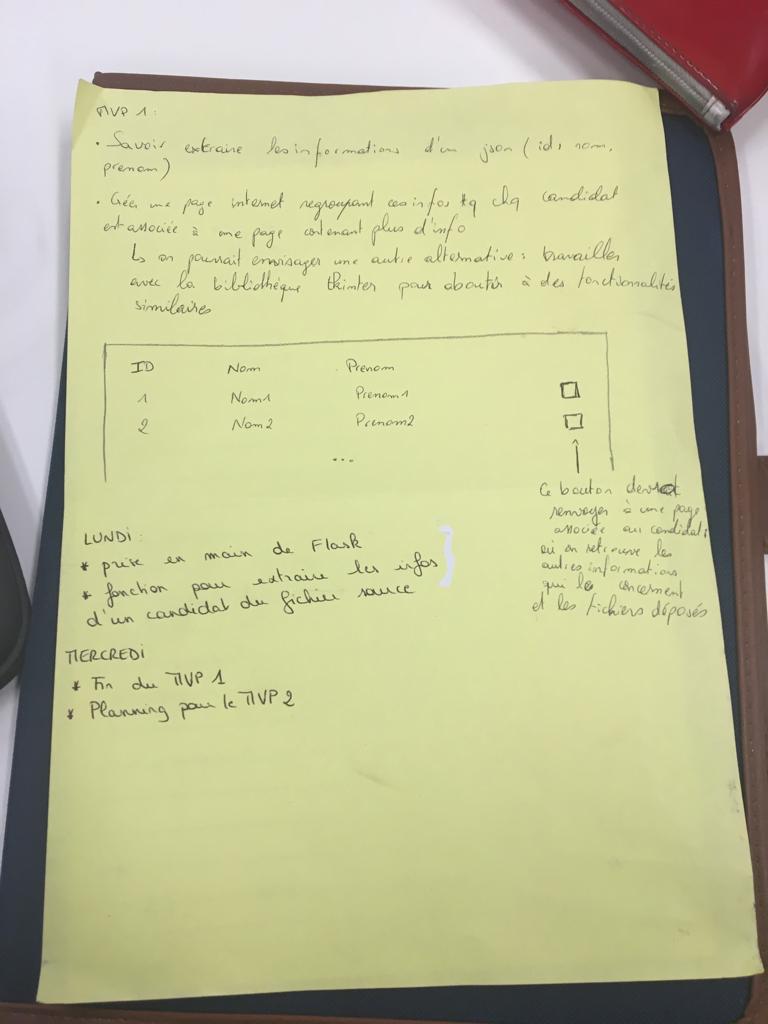 MVP 1 :
• Savoir extraire les informations d'un json (id, nom,
prenom)
• Créer une page internet regroupant ces infos tq chq candidat
est associée à une page contenant plus d'info
↳ on pourrait envisager une autre alternative : travailler
avec la bibliothèque tkinter pour aboutir à des fonctionnalités
similaires
ID Nom Prenom
1 Nom1 Prenom1
2 Nom2 Prenom2
...
Ce bouton devrait
renvoyer à une page
associée au candidat
où on retrouve les
autres informations
qui le concernent
et les fichiers déposés
LUNDI :
* prise en main de Flask
* fonction pour extraire les infos
d'un candidat du fichier source
MERCREDI
* Fin du MVP 1
* Planning pour le MVP 2